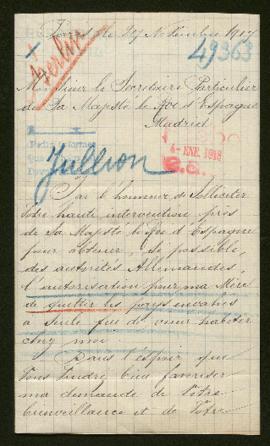 le 27 Novembre 1917
49363
Berlin
Monsieur le Secrétaire Particulier
de Sa Majesté le Roi d'Espagne
Madrid
4-ENE. 1918
Jullion
J'ai l'honneur de solliciter
votre haute intervention près
de Sa Majesté le Roi d'Espagne
pour obtenir, si possible,
des autorités Allemandes,
l'autorisation pour ma Mère
de quitter les pays envahis
à seule fin de venir habiter
chez moi
Dans l'espoir que
vous voudrez bien favoriser
ma demande de votre
bienveillance et de votre